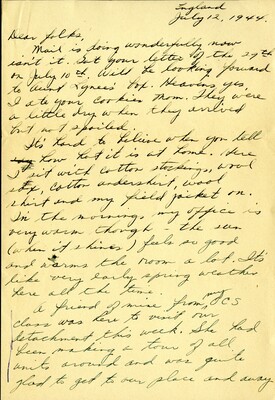 England
July 12, 1944.
Dear folks,
Mail is doing wonderfully now
isn't it. Got your letter of the 29th
on July 10th. Will be looking forward
to Aunt Agnes' box. Heavens yes,
I ate your cookies Mom. They were
a little dry when they arrived
but not spoiled.
It's hard to believe when you tell
how hot it is at home. Here
I sit with cotton stockings, wool
sox, cotton undershirt, wool
shirt and my field jacket on.
In the morning, my office is
very warm though - the sun
(when it shines) feels so good
and warms the room a lot. It's
like very early spring weather
here all the time.
A friend of mine from my OCS
class was here to visit our
detachment this week. She had
been making a tour of all
units around and was quite
glad to get to our place and away